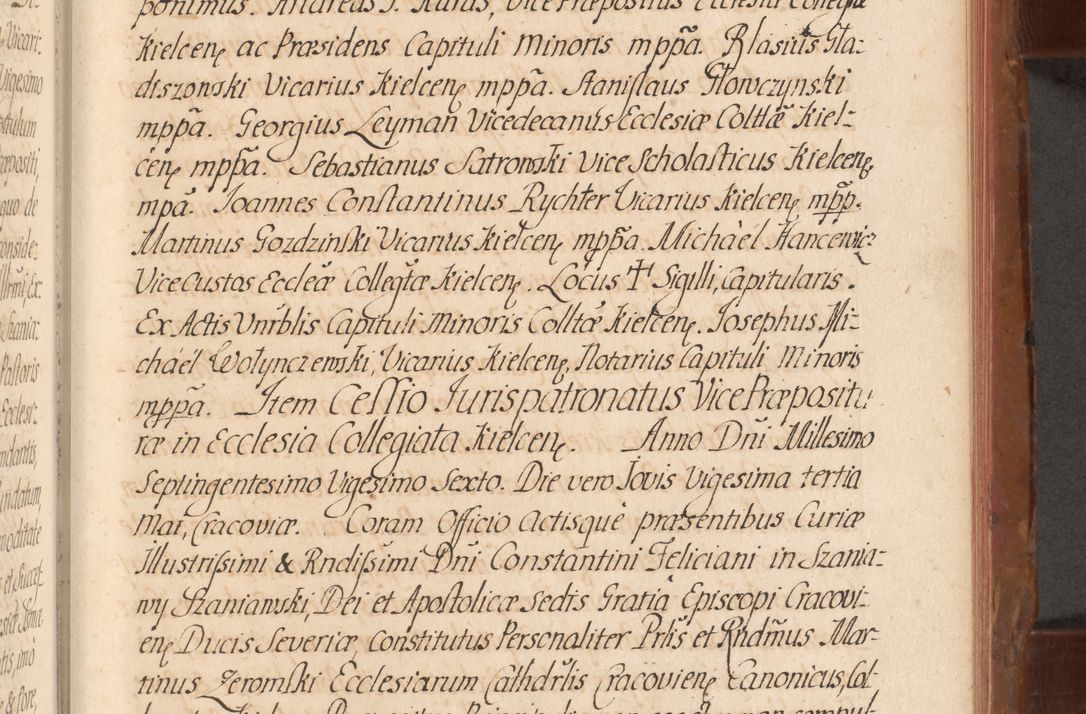 ponimus. Andreas J. Karas, Vice Præpositus Ecclesiæ Collegtæ
Kielcenę ac Præsidens Capituli Minoris mppa. Blasius Gła-
diszowski Vicarius Kielcenę mppa. Stanislaus Głowczynski
mppa. Georgius Leyman Vicedecanus Ecclesiæ Colltæ Kiel-
cenę mppa. Sebastianus Satrowski Vice Scholasticus Kielcenę
mpa. Joannes Constantinus Rychter Vicarius Kielcenę mpp.
Martinus Gozdzinski Vicarius Kielcenę mppa. Michàel Hancewicz
Vice Custos Eccleæ Collegtæ Kielcenę. Locus ✝ Sigilli, Capitularis.
Ex Actis Vnrblis Capituli Minoris Colltæ Kielcenę. Josephus Mi-
chàel Wołynczewski, Vicarius Kielcenę, Notarius Capituli Minoris
mppa. Item Cessio Jurispatronatus Vice Præpositu
ræ in Ecclesia Collegiata Kielcenę. Anno Dni Millesimo
Septingentesimo Vigesimo Sexto. Die vero Jovis Vigesima tertia
Mai, Cracoviæ. Coram Officio Actisque præsentibus Curiæ
Illustrissimi & Rndissimi Dni Constantini Feliciani in Szania-
wy Szaniawski, Dei et Apostolicæ Sedis Gratia Episcopi Cracovi-
enę Ducis Severiæ, Constitutus Personaliter Prlis et Rndmus Mar-
tinus Zeromski Ecclesiarum Cathdrlis Cracovienę Canonicus, Col-